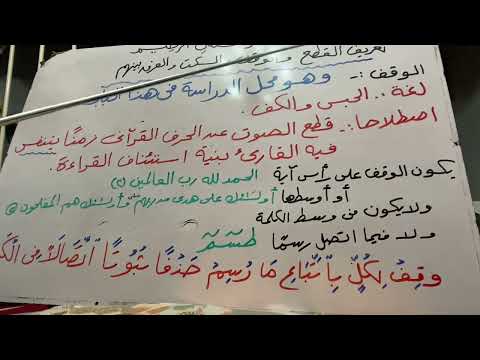 تعريف القطع والوقف والسكت والفرق بينهم
الوقف :- وهو محل الدراسة فى هذا
لغة :. الحبس والكف .
اصطلاحا :. قطع الصوت عند الحرف القرآنى زمنًا يتنفس
فيه القارئ بنية استئناف القراءة .
يكون الوقف على رأس آية الحمد لله رب العالمين
أو أوسطها أولئك على هدى من ربهم وأولئك هم المفلحون
ولا يكون فى وسط الكلمة
ولا فيما اتصل رسمًا طسٓمٓ
وَقِفْ لِكُلٍّ بِاتِّبَاعِ مَا رُسِمْ حَذْفًا ثُبُوتًا اتِّصَالًا فِى